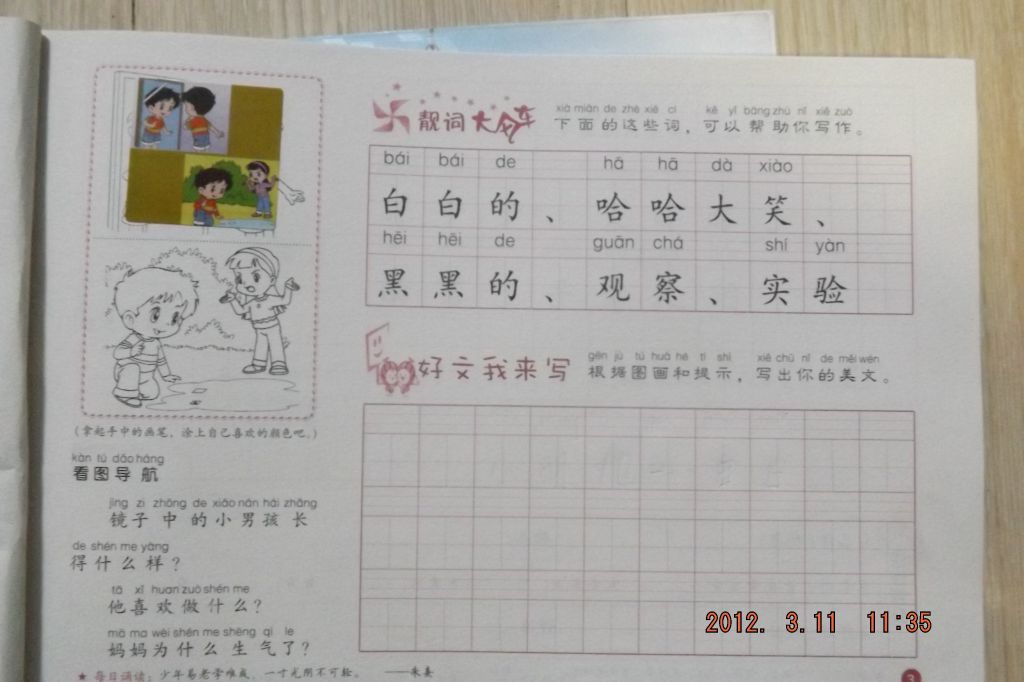 (拿起手中的画笔，涂上自己喜欢的颜色吧。)
kàn tú dǎo háng
看图导航
jìng zi zhōng de xiǎo nán hái zhǎng
镜子中的小男孩长
de shén me yàng
得什么样？
tā xǐ huan zuò shén me
他喜欢做什么？
mā ma wèi shén me shēng qì le
妈妈为什么生气了？
★ 每日诵读：少年易老学难成，一寸光阴不可轻。 ——朱熹
靓词大风车
xià miàn de zhè xiē cí kě yǐ bāng zhù nǐ xiě zuò
下面的这些词，可以帮助你写作。
bái bái de hā hā dà xiào
白白的、哈哈大笑、
hēi hēi de guān chá shí yàn
黑黑的、观察、实验
好文我来写
gēn jù tú huà hé tí shì xiě chū nǐ de měi wén
根据图画和提示，写出你的美文。
2012. 3.11 11:35
3